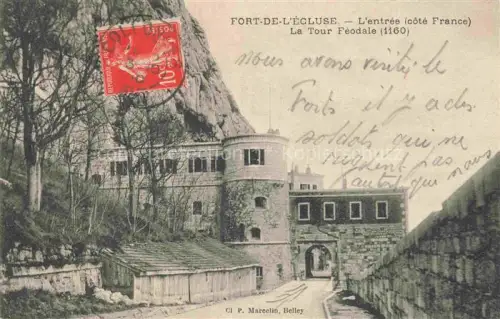 FORT-DE-L'ÉCLUSE. — L'entrée (côté France)
La Tour Féodale (1160)
10c
nous avons visité le
Forts il y a des
soldats qui ne
pas
autre que nous
Cl P. Marcelin, Belley